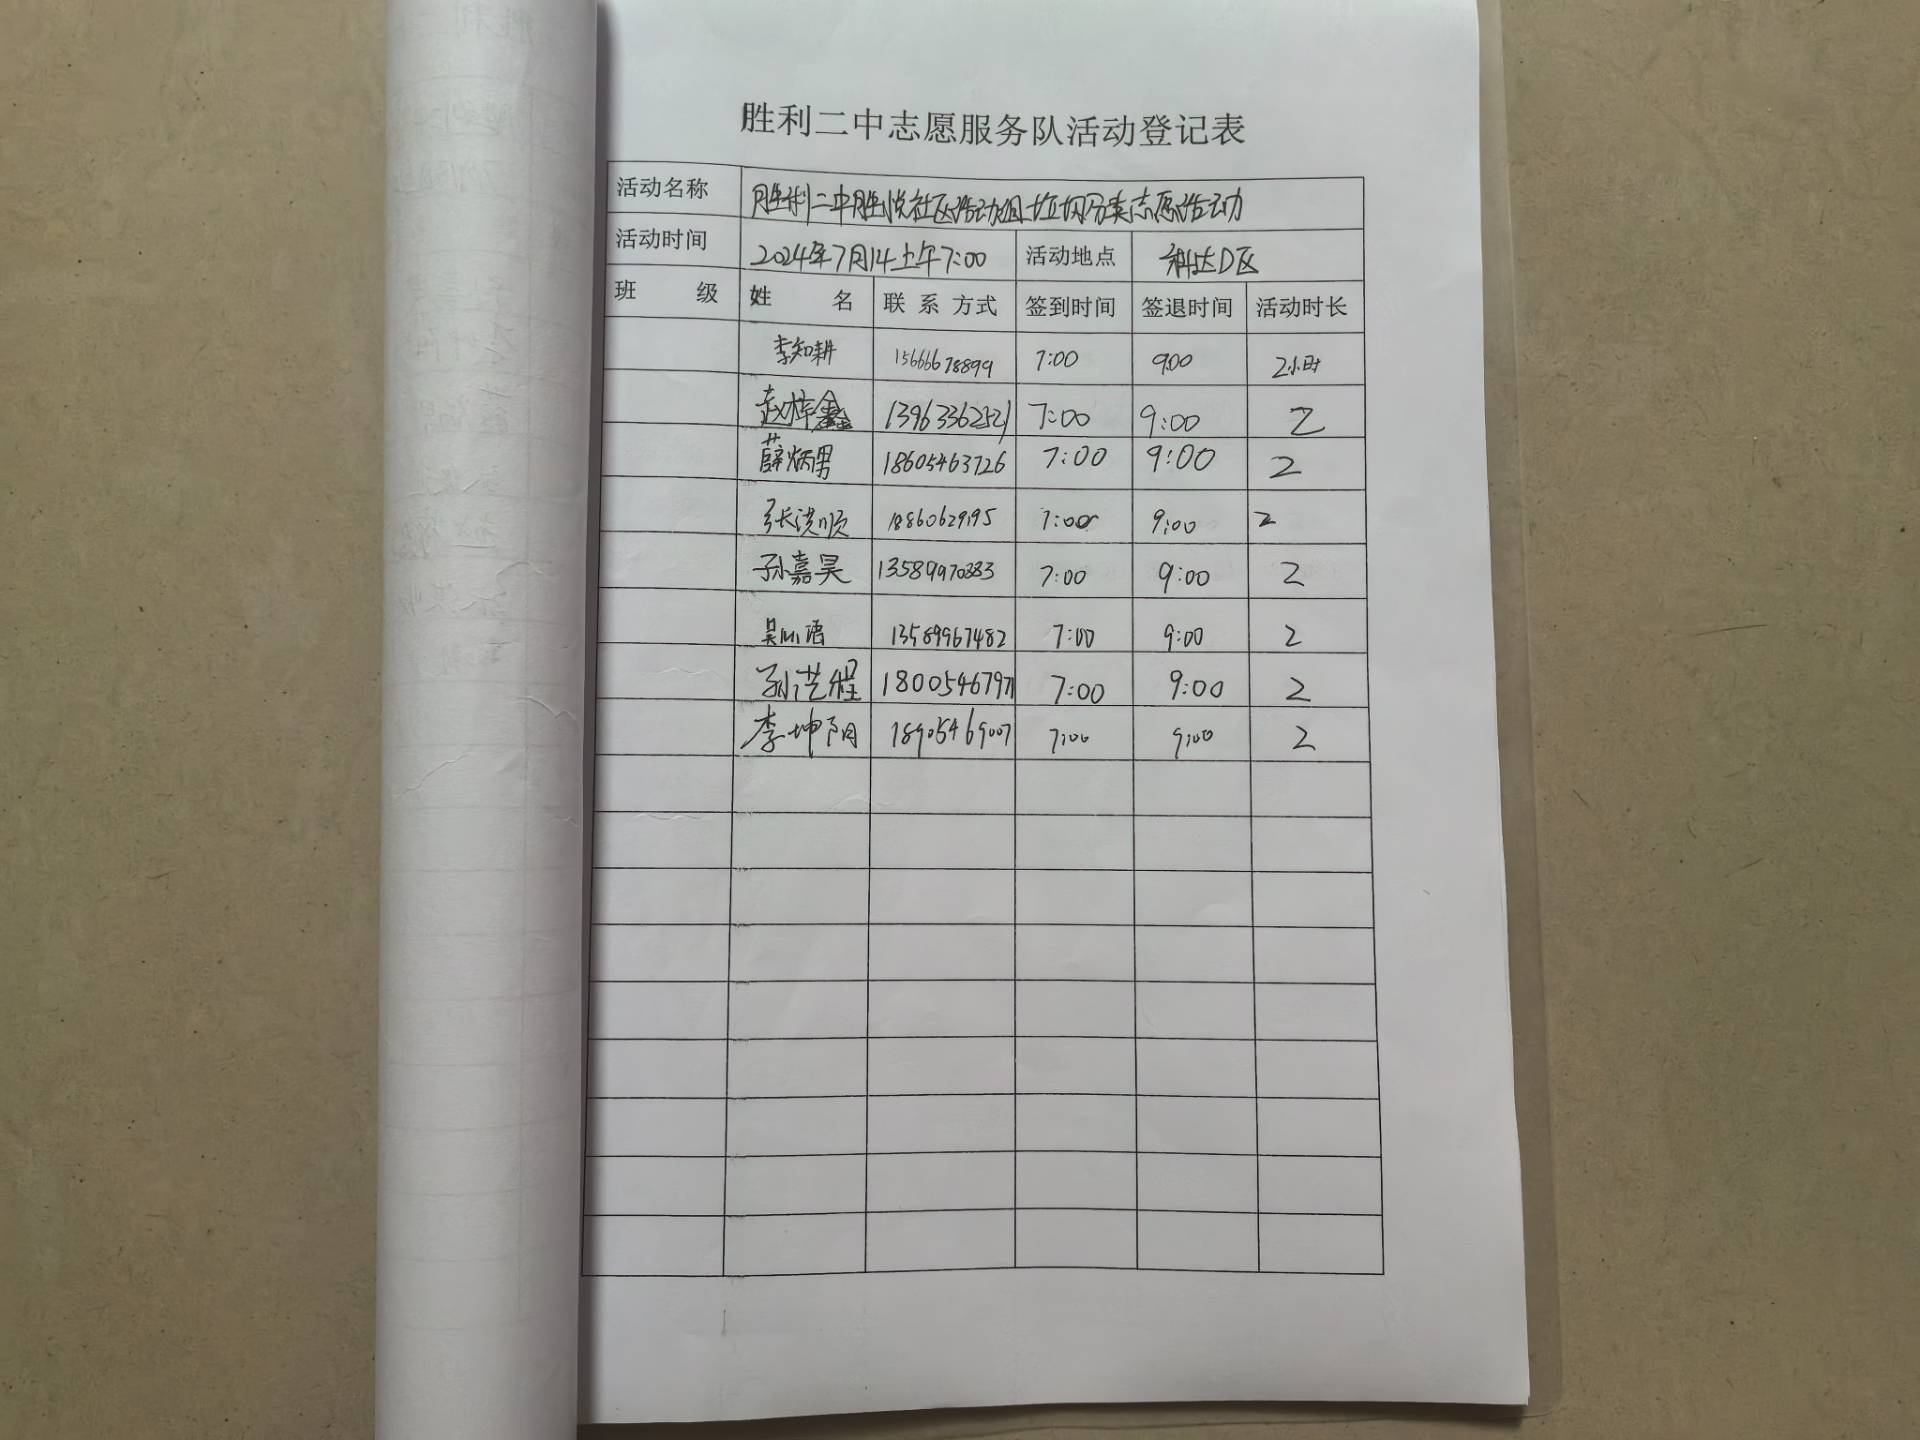 胜利二中志愿服务队活动登记表
活动名称 胜利二中胜悦社区活动组垃圾分类志愿活动
活动时间 2024年7月14上午7:00 活动地点 科达D区
班 级 姓 名 联 系 方式 签到时间 签退时间 活动时长
李知耕 15666678899 7:00 9:00 2小时
赵梓鑫 13963362521 7:00 9:00 2
薛炳男 18605463726 7:00 9:00 2
张洪顺 18860629195 7:00 9:00 2
孙嘉昊 13589970383 7:00 9:00 2
吴心语 13589967482 7:00 9:00 2
孙艺程 18005467971 7:00 9:00 2
李坤阳 18905469007 7:00 9:00 2